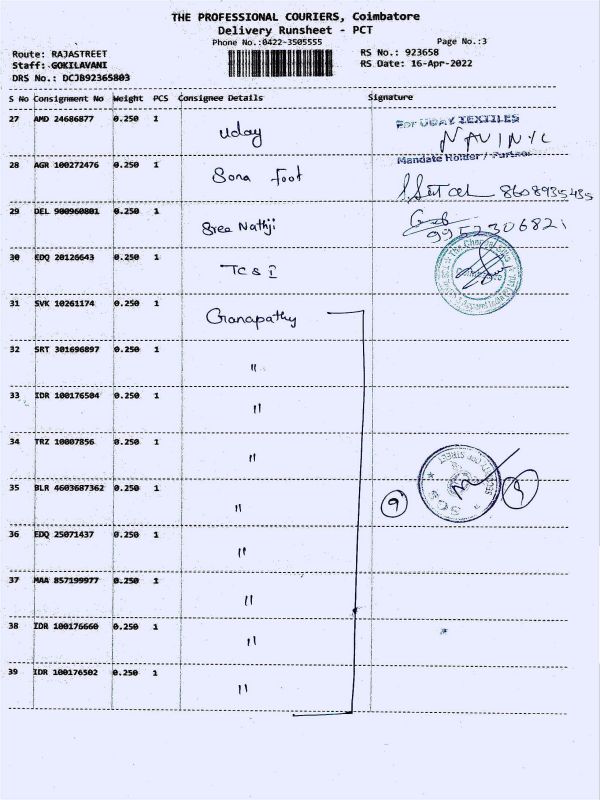 THE PROFESSIONAL COURIERS, Coimbatore
Delivery Runsheet - PCT
Phone No.:0422-3505555 Page No.:3
Route: RAJASTREET RS No.: 923658
Staff: GOKILAVANI RS Date: 16-Apr-2022
DRS No.: DCJB92365803
S No Consignment No Weight PCS Consignee Details Signature
27 AMD 24686877 0.250 1 Uday For UDAY TEXTILES
Mandate Holder / Partner
28 AGR 100272476 0.250 1 Sona Foot 8608935435
29 DEL 900960801 0.250 1 Sree Nathji 9952306821
30 EDQ 20126643 0.250 1 TC & I
31 SVK 10261174 0.250 1 Ganapathy
32 SRT 301696897 0.250 1 "
33 IDR 100176504 0.250 1 "
34 TRZ 10007856 0.250 1 "
35 BLR 4603687362 0.250 1 " 9 SCS 9
36 EDQ 25071437 0.250 1 "
37 MAA 857199977 0.250 1 "
38 IDR 100176660 0.250 1 "
39 IDR 100176502 0.250 1 "